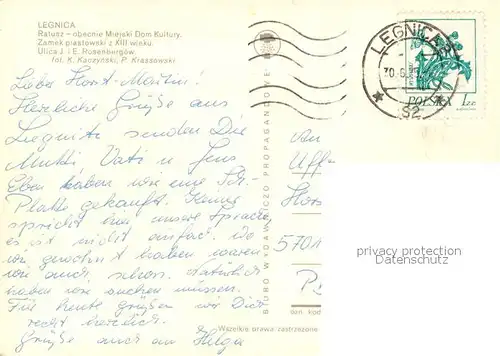 LEGNICA
Ratusz — obecnie Miejski Dom Kultury.
Zamek piastowski z XIII wieku.
Ulica J. i E. Rosenbergów.
fot. K. Kaczyński, P. Krassowski
LEGNICA 2
POLSKA 1 ZŁ
Lieber Horst-Martin!
Herzliche Grüße aus
Liegnitz senden Dir
Mutti Vati u. Jens
Eben haben wir eine
Platte gekauft. Keiner
spricht hier unsere Sprache,
es ist nicht einfach. Wo
wir gewohnt haben waren
wir auch schon. Natürlich
haben wir suchen müssen.
Für heute grüßen wir Dich
recht herzlich.
Grüße auch an Helga
BIURO WYDAWNICZO PROPAGANDOWE
An
5701
privacy protection
AnsichtskartenVersand.com
Wszelkie prawa zastrzeżone